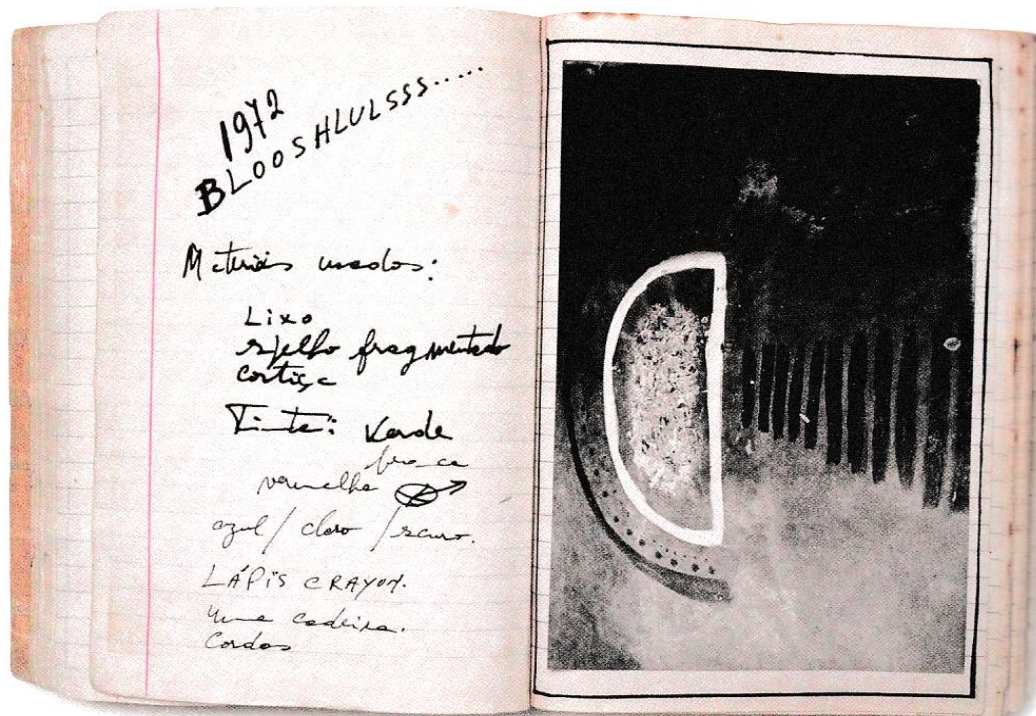 1972
BLOOSHLULSSS.....
Materiais usados:
Lixo
espelho fragmentado
cortiça
Tinta: Verde
branca
vermelha
azul / claro / escuro.
LÁPIS CRAYON.
uma cadeira.
Cordas